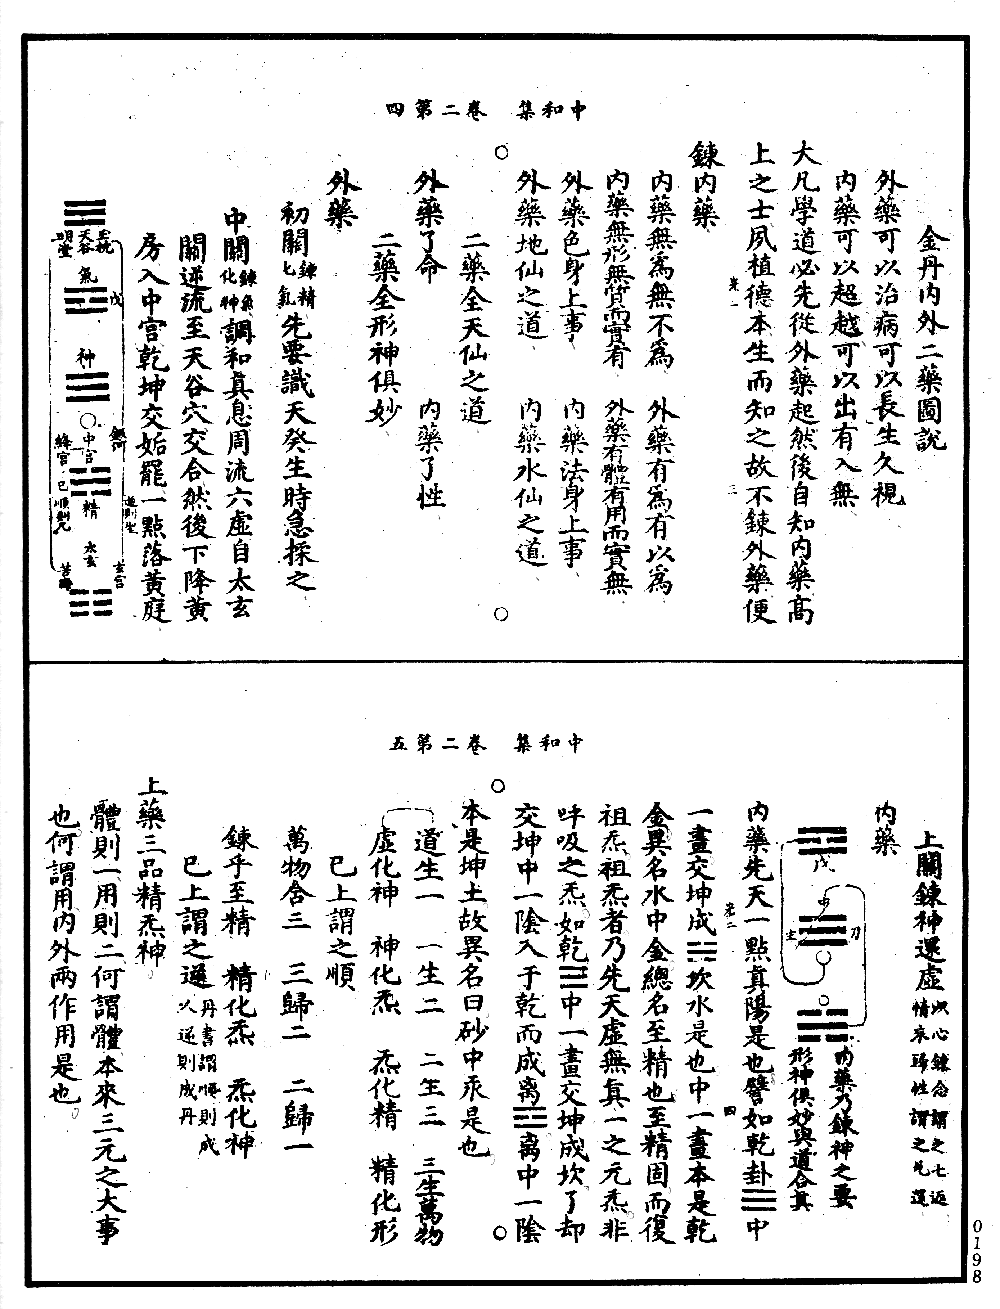 中和集 卷二第四
金丹內外二藥圖說
外藥可以治病可以長生久視
內藥可以超越可以出有入無
大凡學道必先從外藥起然後自知內藥高
上之士夙植德本生而知之故不鍊外藥便
鍊內藥
內藥無爲無不爲 外藥有爲有以爲
內藥無形無質而實有 外藥有體有用而實無
外藥色身上事 內藥法身上事
外藥地仙之道 內藥水仙之道
二藥全天仙之道
外藥了命 內藥了性
二藥全形神俱妙
外藥
初關鍊精化氣先要識天癸生時急採之
中關鍊氣化神調和真息周流六虛自太玄
關逆流至天谷穴交合然後下降黃
房入中宮乾坤交姤罷一點落黃庭
玉枕
天谷
明堂
氣
戊
神
中宮
絳宮
己
順則凡
精
逆則生
太玄
玄宮
苦海
中和集 卷二第五
上關鍊神還虛以心鍊念謂之七返
情來歸性謂之九還
內藥
戊
內藥乃鍊神之要
形神俱妙與道合真
內藥先天一點真陽是也譬如乾卦☰中
一畫交坤成☵坎水是也中一畫本是乾
金異名水中金總名至精也至精固而復
祖炁祖炁者乃先天虛無真一之元炁非
呼吸之炁如乾☰中一畫交坤成坎了却
交坤中一陰入于乾而成離☲離中一陰
本是坤土故異名曰砂中汞是也
道生一 一生二 二生三 三生萬物
虛化神 神化炁 炁化精 精化形
已上謂之順
萬物含三 三歸二 二歸一
鍊乎至精 精化炁 炁化神
已上謂之逆丹書謂順則成
人逆則成丹
上藥三品精炁神
體則一用則二何謂體本來三元之大事
也何謂用內外兩作用是也
0198